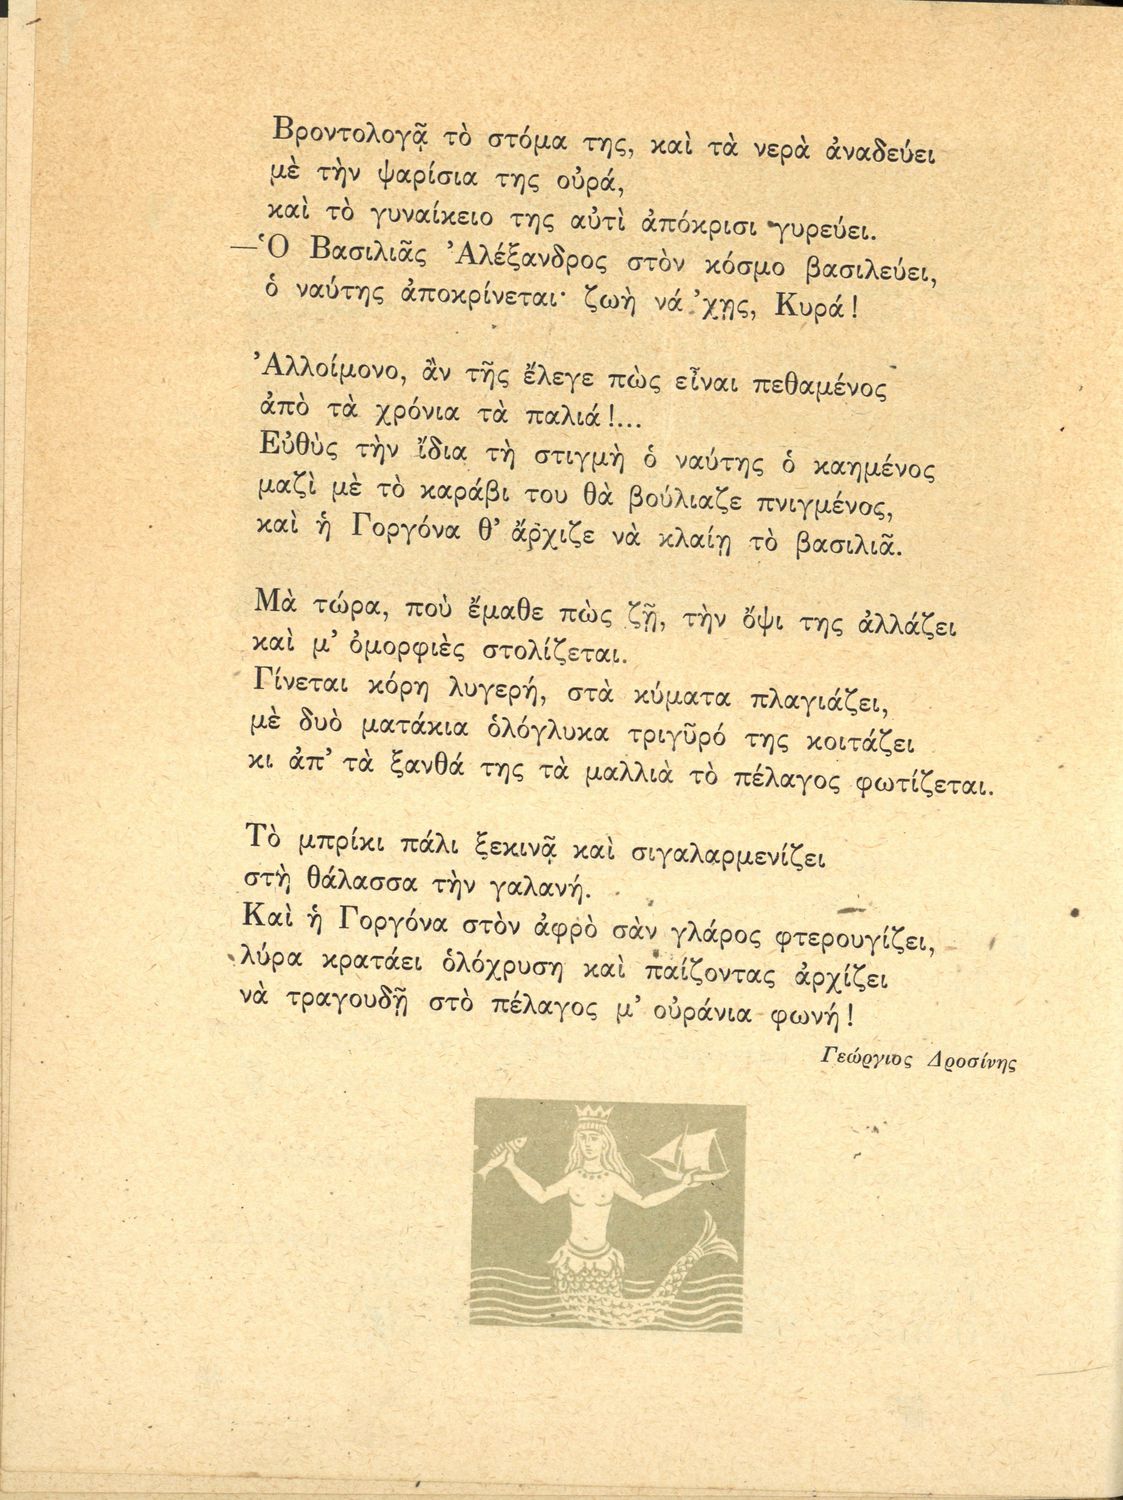 Βροντολογᾷ τὸ στόμα της, καὶ τὰ νερὰ ἀναδεύει
μὲ τὴν ψαρίσια της οὐρά,
καὶ τὸ γυναίκειο της αὐτὶ ἀπόκρισι γυρεύει.
—Ὁ Βασιλιᾶς Ἀλέξανδρος στὸν κόσμο βασιλεύει,
ὁ ναύτης ἀποκρίνεται· ζωὴ νά ’χῃς, Κυρά!
Ἀλλοίμονο, ἂν τῆς ἔλεγε πὼς εἶναι πεθαμένος
ἀπὸ τὰ χρόνια τὰ παλιά!...
Εὐθὺς τὴν ἴδια τὴ στιγμὴ ὁ ναύτης ὁ καημένος
μαζὶ μὲ τὸ καράβι του θὰ βούλιαζε πνιγμένος,
καὶ ἡ Γοργόνα θ’ ἄρχιζε νὰ κλαίῃ τὸ βασιλιᾶ.
Μὰ τώρα, ποὺ ἔμαθε πὼς ζῇ, τὴν ὄψι της ἀλλάζει
καὶ μ’ ὀμορφιὲς στολίζεται.
Γίνεται κόρη λυγερή, στὰ κύματα πλαγιάζει,
μὲ δυὸ ματάκια ὁλόγλυκα τριγῦρό της κοιτάζει
κι ἀπ’ τὰ ξανθά της τὰ μαλλιὰ τὸ πέλαγος φωτίζεται.
Τὸ μπρίκι πάλι ξεκινᾷ καὶ σιγαλαρμενίζει
στὴ θάλασσα τὴν γαλανή.
Καὶ ἡ Γοργόνα στὸν ἀφρὸ σὰν γλάρος φτερουγίζει,
λύρα κρατάει ὁλόχρυση καὶ παίζοντας ἀρχίζει
νὰ τραγουδῇ στὸ πέλαγος μ’ οὐράνια φωνή!
Γεώργιος Δροσίνης